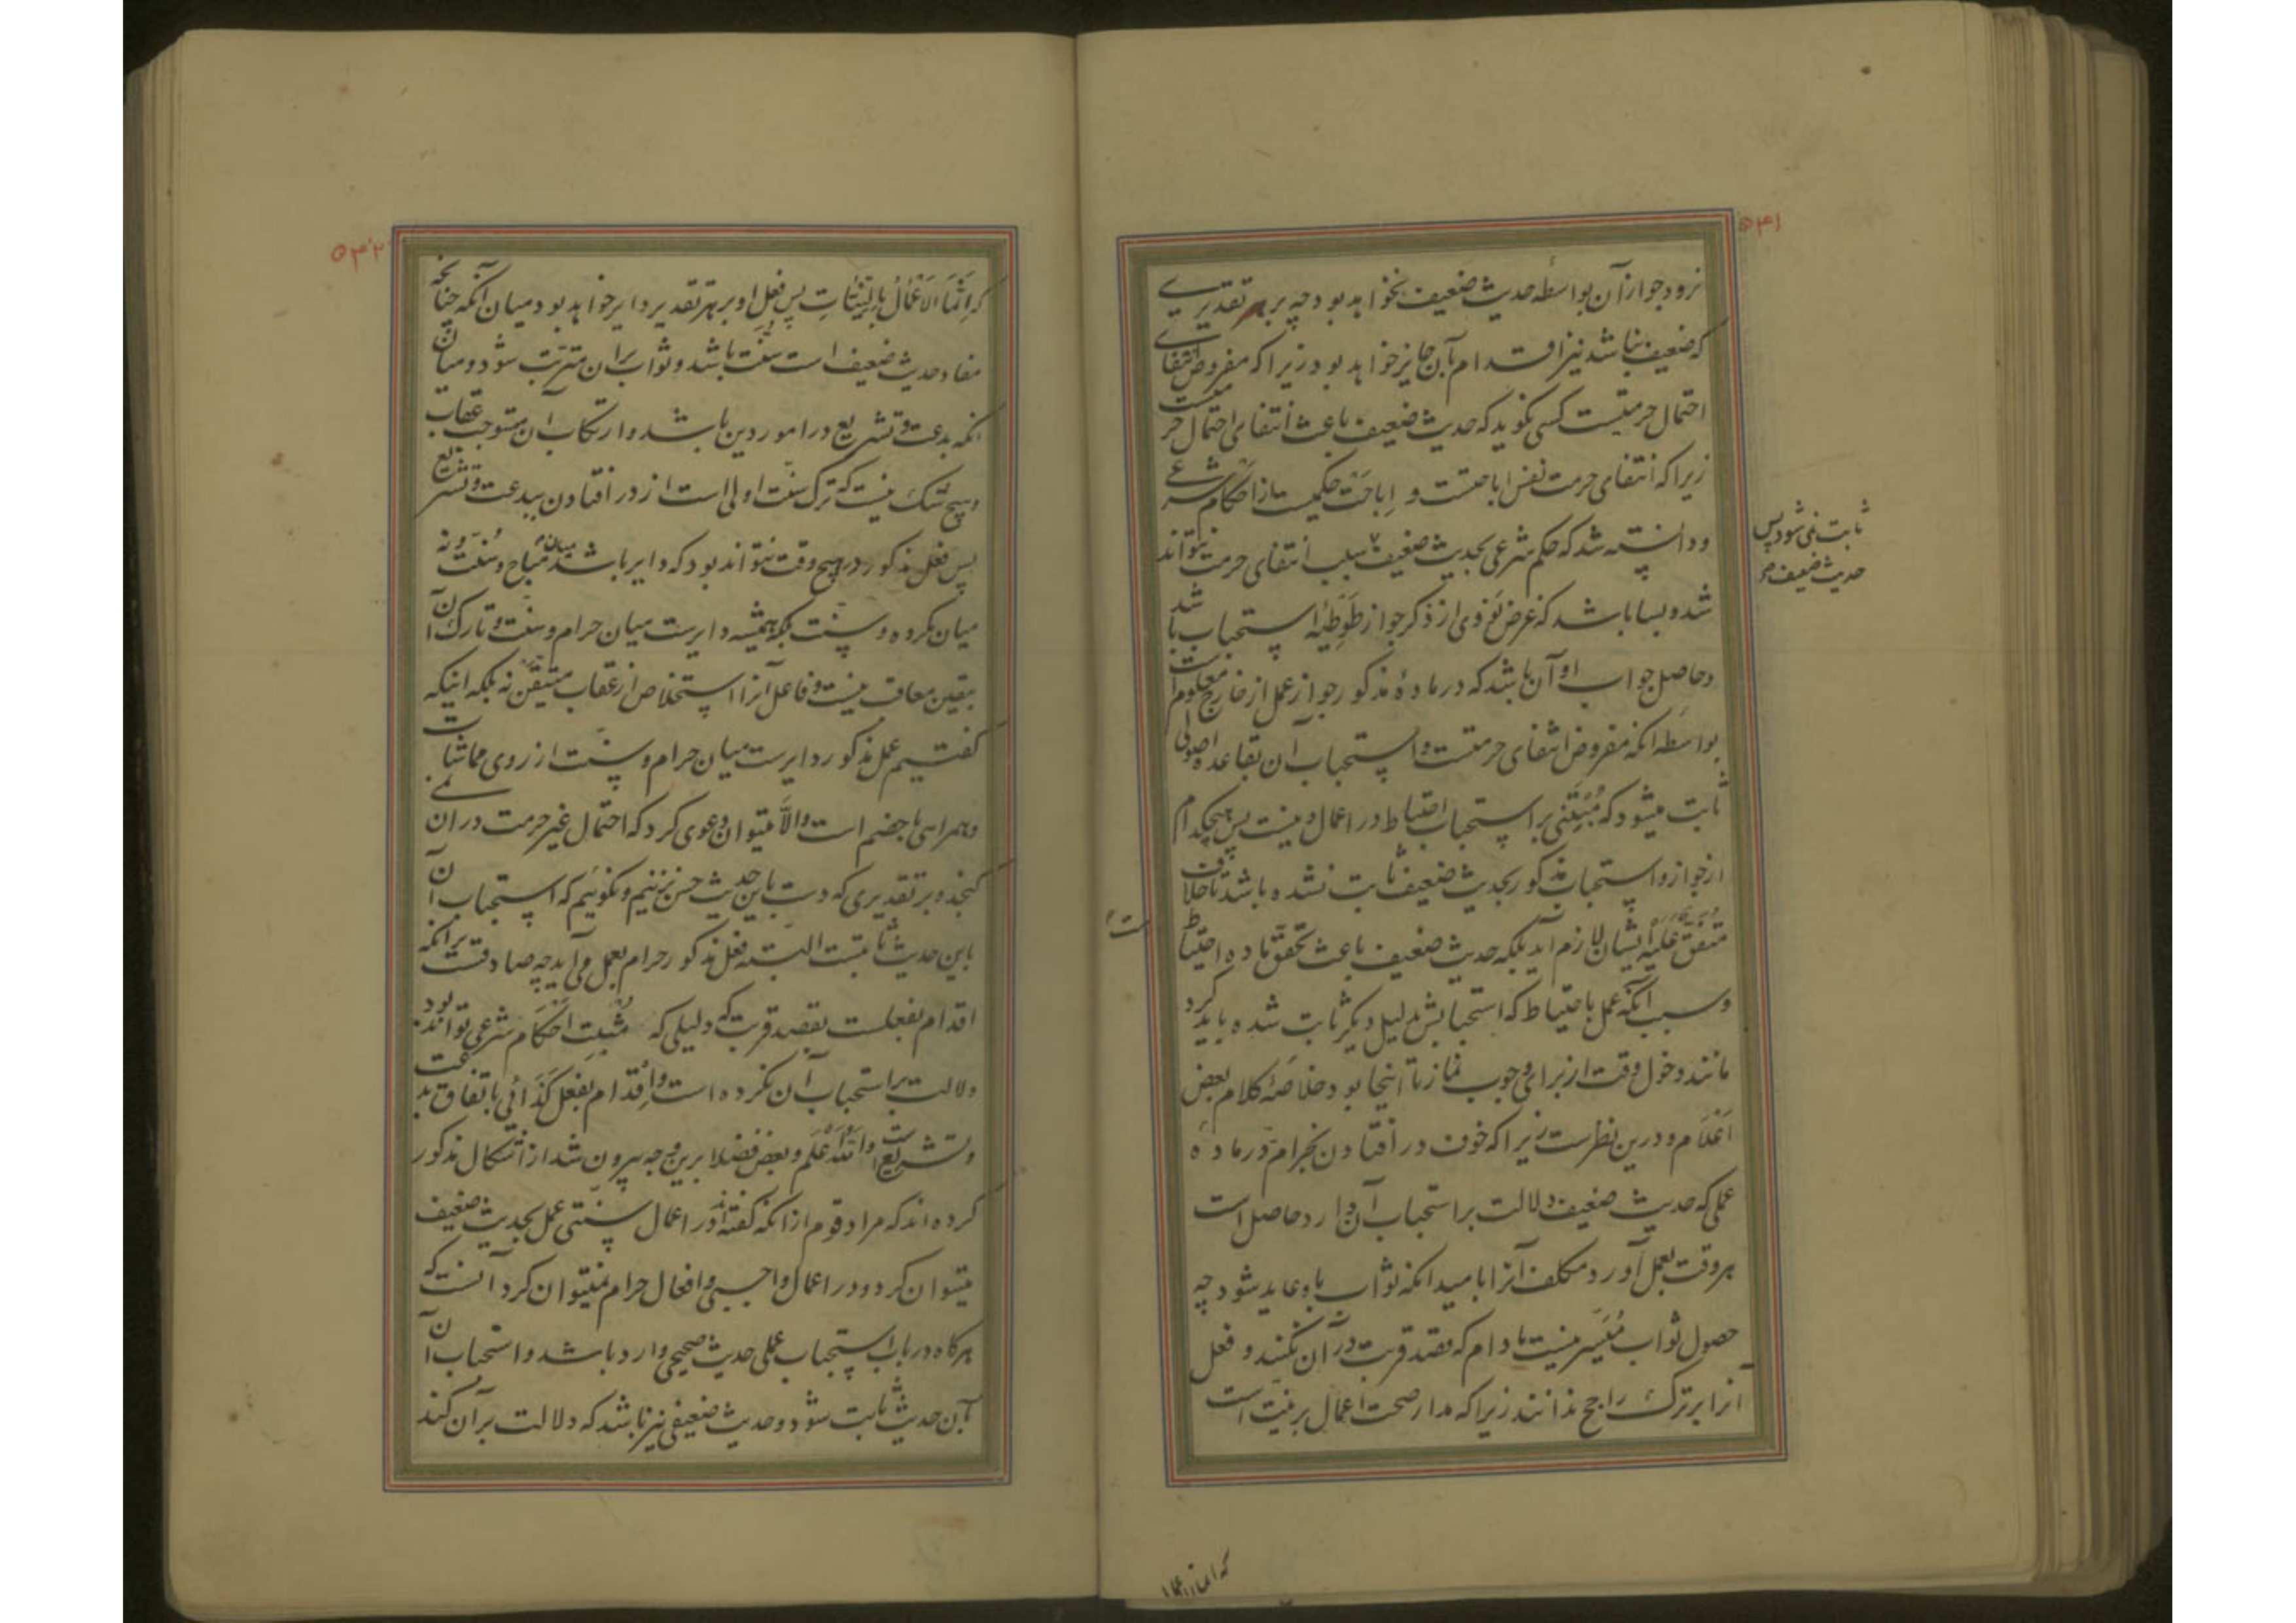 ۵۴۱
نرود جواز آن بواسطه حدیث ضعیف نخواهد بود چه بر هر تقدیری
که ضعیف نباشد نیز اقدام بآن جایز خواهد بود زیرا که مفروض انتفای
احتمال حرمتست کسی نگوید که حدیث ضعیف باعث انتفای احتمال حرمتست
زیرا که انتفای حرمت نفس اباحتست و اِباحَت حکمیست از احکام شرعی
و دانسته شد که حکم شرعی بحدیث ضعیف سبب انتفای حرمت نتواند
ثابت نمی شود پس
حدیث ضعیف
شد و بسا باشد که غرض نَوَوی از ذکر جواز طَوْطِئَهٔ استحباب باشد
و حاصل جواب او آن باشد که در مادهٔ مذکور جواز عمل از خارج معلوم است
بواسطهٔ آنکه مفروض انتفای حرمتست و استحباب آن بقاعده اصولی
ثابت میشود که مُبْتَنی بر استحباب احتیاط در اعمال دینست پس هیچکدام
از جواز و استحباب مذکور بحدیث ضعیف ثابت نشده باشد تا خلاف
متفق عَلَیْه ایشان لازم آید بلکه حدیث ضعیف باعث تحقق ماده احتیاط
و سبب آنکه عمل باحتیاط که استحبابش بدلیل دیگر ثابت شده باید کرد
مانند دخول وقت از برای وجوب نماز تا اینجا بود خلاصهٔ کلام بعض
اَعْلام و درین نظرست زیرا که خوف در افتادن بحرام در ماده
عملی که حدیث ضعیف دلالت بر استحباب آن دارد حاصل است
هر وقت بعمل آورد مکلف آنرا بامید آنکه ثواب باو عاید شود چه
حصول ثواب مُیَسَّر نیست مادام که قصد قربت در آن نکنند و فعل
آنرا بر ترک راجح ندانند زیرا که مدار صحت اعمال بر نیت است
۵۴۲
که اِنَّمَا الاَعْمٰالُ بِالنِّیّٰاتِ پس فعل او بر هر تقدیر دایر خواهد بود میان آنکه چنانچه
مفاد حدیث ضعیف است سنّت باشد و ثواب بر آن مترتب شود و میان
آنکه بدعت و تشریع در امور دین باشد و ارتکاب آن مستوجب عقاب
و هیچ شک نیست که ترک سنّت اولی است از در افتادن ببدعت و تشریع
پس فعل مذکور در هیچ وقت نتواند بود که دایر باشد میان مباح و سُنّت و نه
میان مکروه و سنّت بلکه همیشه دایرست میان حرام و سنّت و تارک آن
بیقین معاقب نیست و فاعل آنرا استخلاص از عقاب متیقّن نه بلکه اینکه
گفتیم عمل مذکور دایرست میان حرام و سنّت از روی مماشات
و همراهی با خصم است و الاّ میتوان دعوی کرد که احتمال غیر حرمت در آن نمی
گنجد و بر تقدیری که دست باین حدیث حسن نزنیم و نگوئیم که استحباب آن
باین حدیث ثابتست البته فعل مذکور حرام بعمل می آید چه صادقست بر آنکه
اقدام بفعلست بقصد قربت که دلیلی که مُثبِت احکام شرعی تواند بود
دلالت بر استحباب آن نکرده است و اِقدام بفعل کَذائی باتفاق بدعت
و تشریع است و اللّٰه اَعْلَم و بعض فضلا برین وجه بیرون شد از اشکال مذکور
کرده اند که مراد قوم از آنکه گفته اند در اعمال سنّتی عمل بحدیث ضعیف
میتوان کرد و در اعمال واجبی و افعال حرام نمیتوان کرد آنست که
هر گاه در باب استحباب عملی حدیث صحیحی وارد باشد و استحباب آن
بآن حدیث ثابت شود و حدیث ضعیفی نیز باشد که دلالت بر آن کند